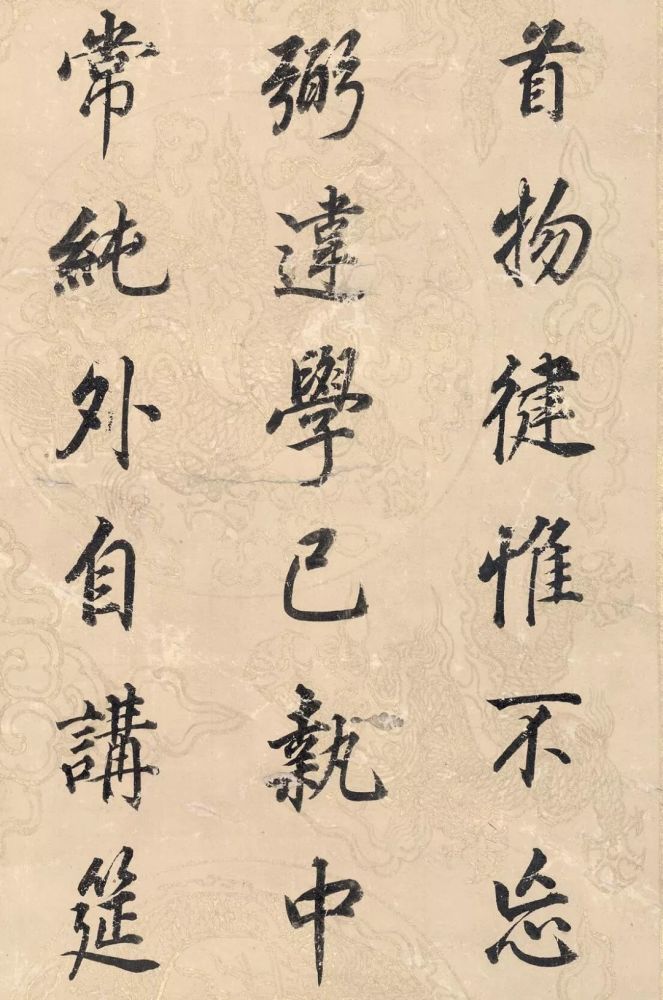 首物健惟不忘
弼違學已執中
常純外自講筵